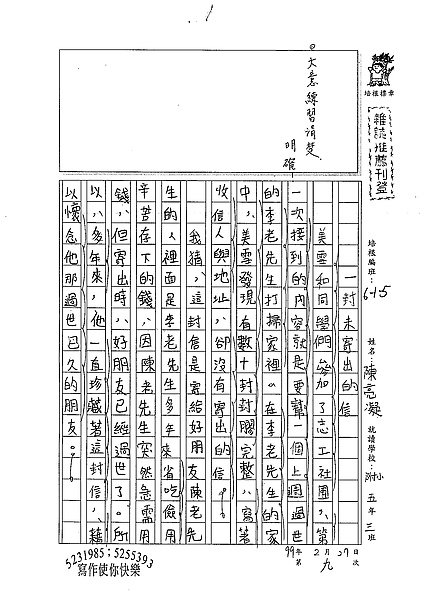 1
文意練習清楚
明確
培根標章
雜誌推薦刊登
培根編班:6-15 姓名:陳亮凝 就讀學校:附小 五年三班
99年2月27日
第九次
一封未寄出的信
美雲和同學們參加了志工社團,第
一次接到的內容就是要幫一個上週過世
的李老先生打掃家裡。在李老先生的家
中,美雲發現有數十封封膠完整,寫著
收信人與地址,卻沒有寄出的信。
我猜,這封信是寄給好朋友陳老先
生的,裡面是李老先生多年來省吃儉用
辛苦存下的錢,因陳老先生突然急需用
錢,但寄出時,好朋友已經過世了。所
以,多年來,他一直珍藏著這封信,藉
以懷念他那過世已久的朋友。
5231985;5255393
寫作使你快樂